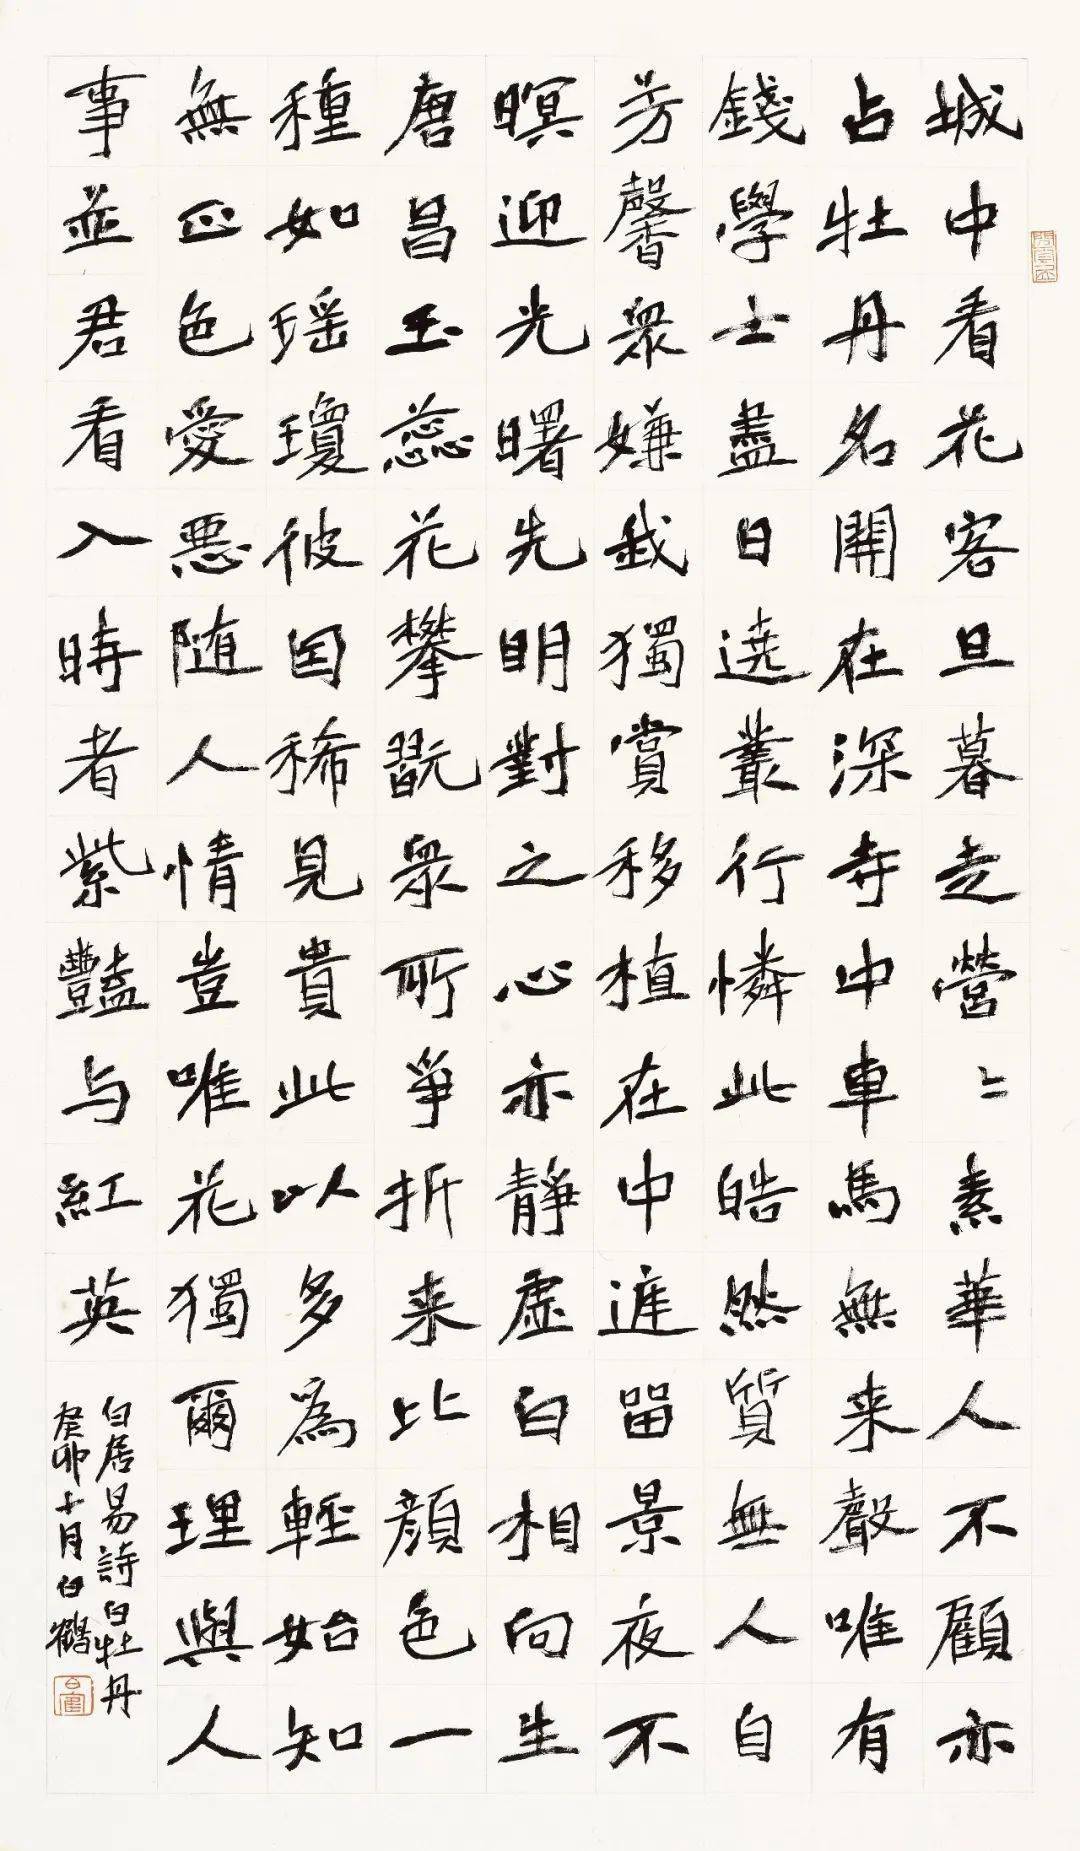 城中看花客旦暮走營〻素華人不顧亦
占牡丹名開在深寺中車馬無来聲唯有
錢學士盡日遶叢行憐此皓然質無人自
芳馨衆嫌我獨賞移植在中遮留景夜不
暝迎光曙先明對之心亦静虚白相向生
唐昌玉蕊花攀翫衆所爭折来比顔色一
種如瑶瓊彼因稀見貴此以多為輕始知
無正色愛惡随人情豈唯花獨爾理與人
事並君看入時者紫豔与紅英
白居易詩白牡丹
癸卯十月白鶴